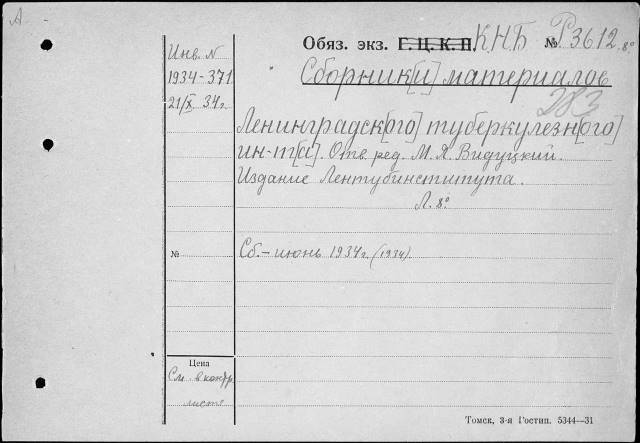 А
Инв. N
1934-371
21/X 34 г.
Обяз. экз. Г. Ц. К. П. КНБ № Р3612 8°
Сборник[и] материалов
283
Ленинградск[ого] туберкулезн[ого]
ин-т[а]. Отв. ред. М. Я. Видуцкий.
Издание Лентубинститута.
Л. 8°
№
Сб. – июнь 1934 г. (1934).
Цена
См. в контр.
листе
Томск, 3-я Гостип. 5344—31